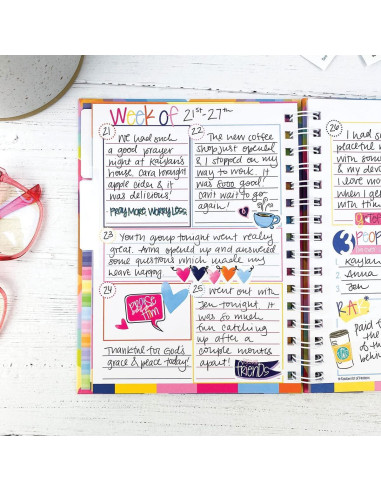 Week of 21st-27th
21
We had such
a good prayer
night at Kaylan's
house. Cara brought
apple cider & it
was delicious!
Pray More, Worry Less
22
The new coffee
shop just opened
& I stopped on my
way to work. It
was sooo good!
can't wait to go
again!
23
Youth group tonight went really
great. Anna opened up and answered
some questions which made my
heart happy.
24
praise
Him
Thankful for God's
grace & peace today!
25
went out with
Jen tonight. It
was so much
fun catching
up after a
couple months
apart!
friends
26
I had
peaceful
with some
& my devo
I love
when I
with
3 People
Kaylan
Anna
Jen
RA
Paid
the
of
behind